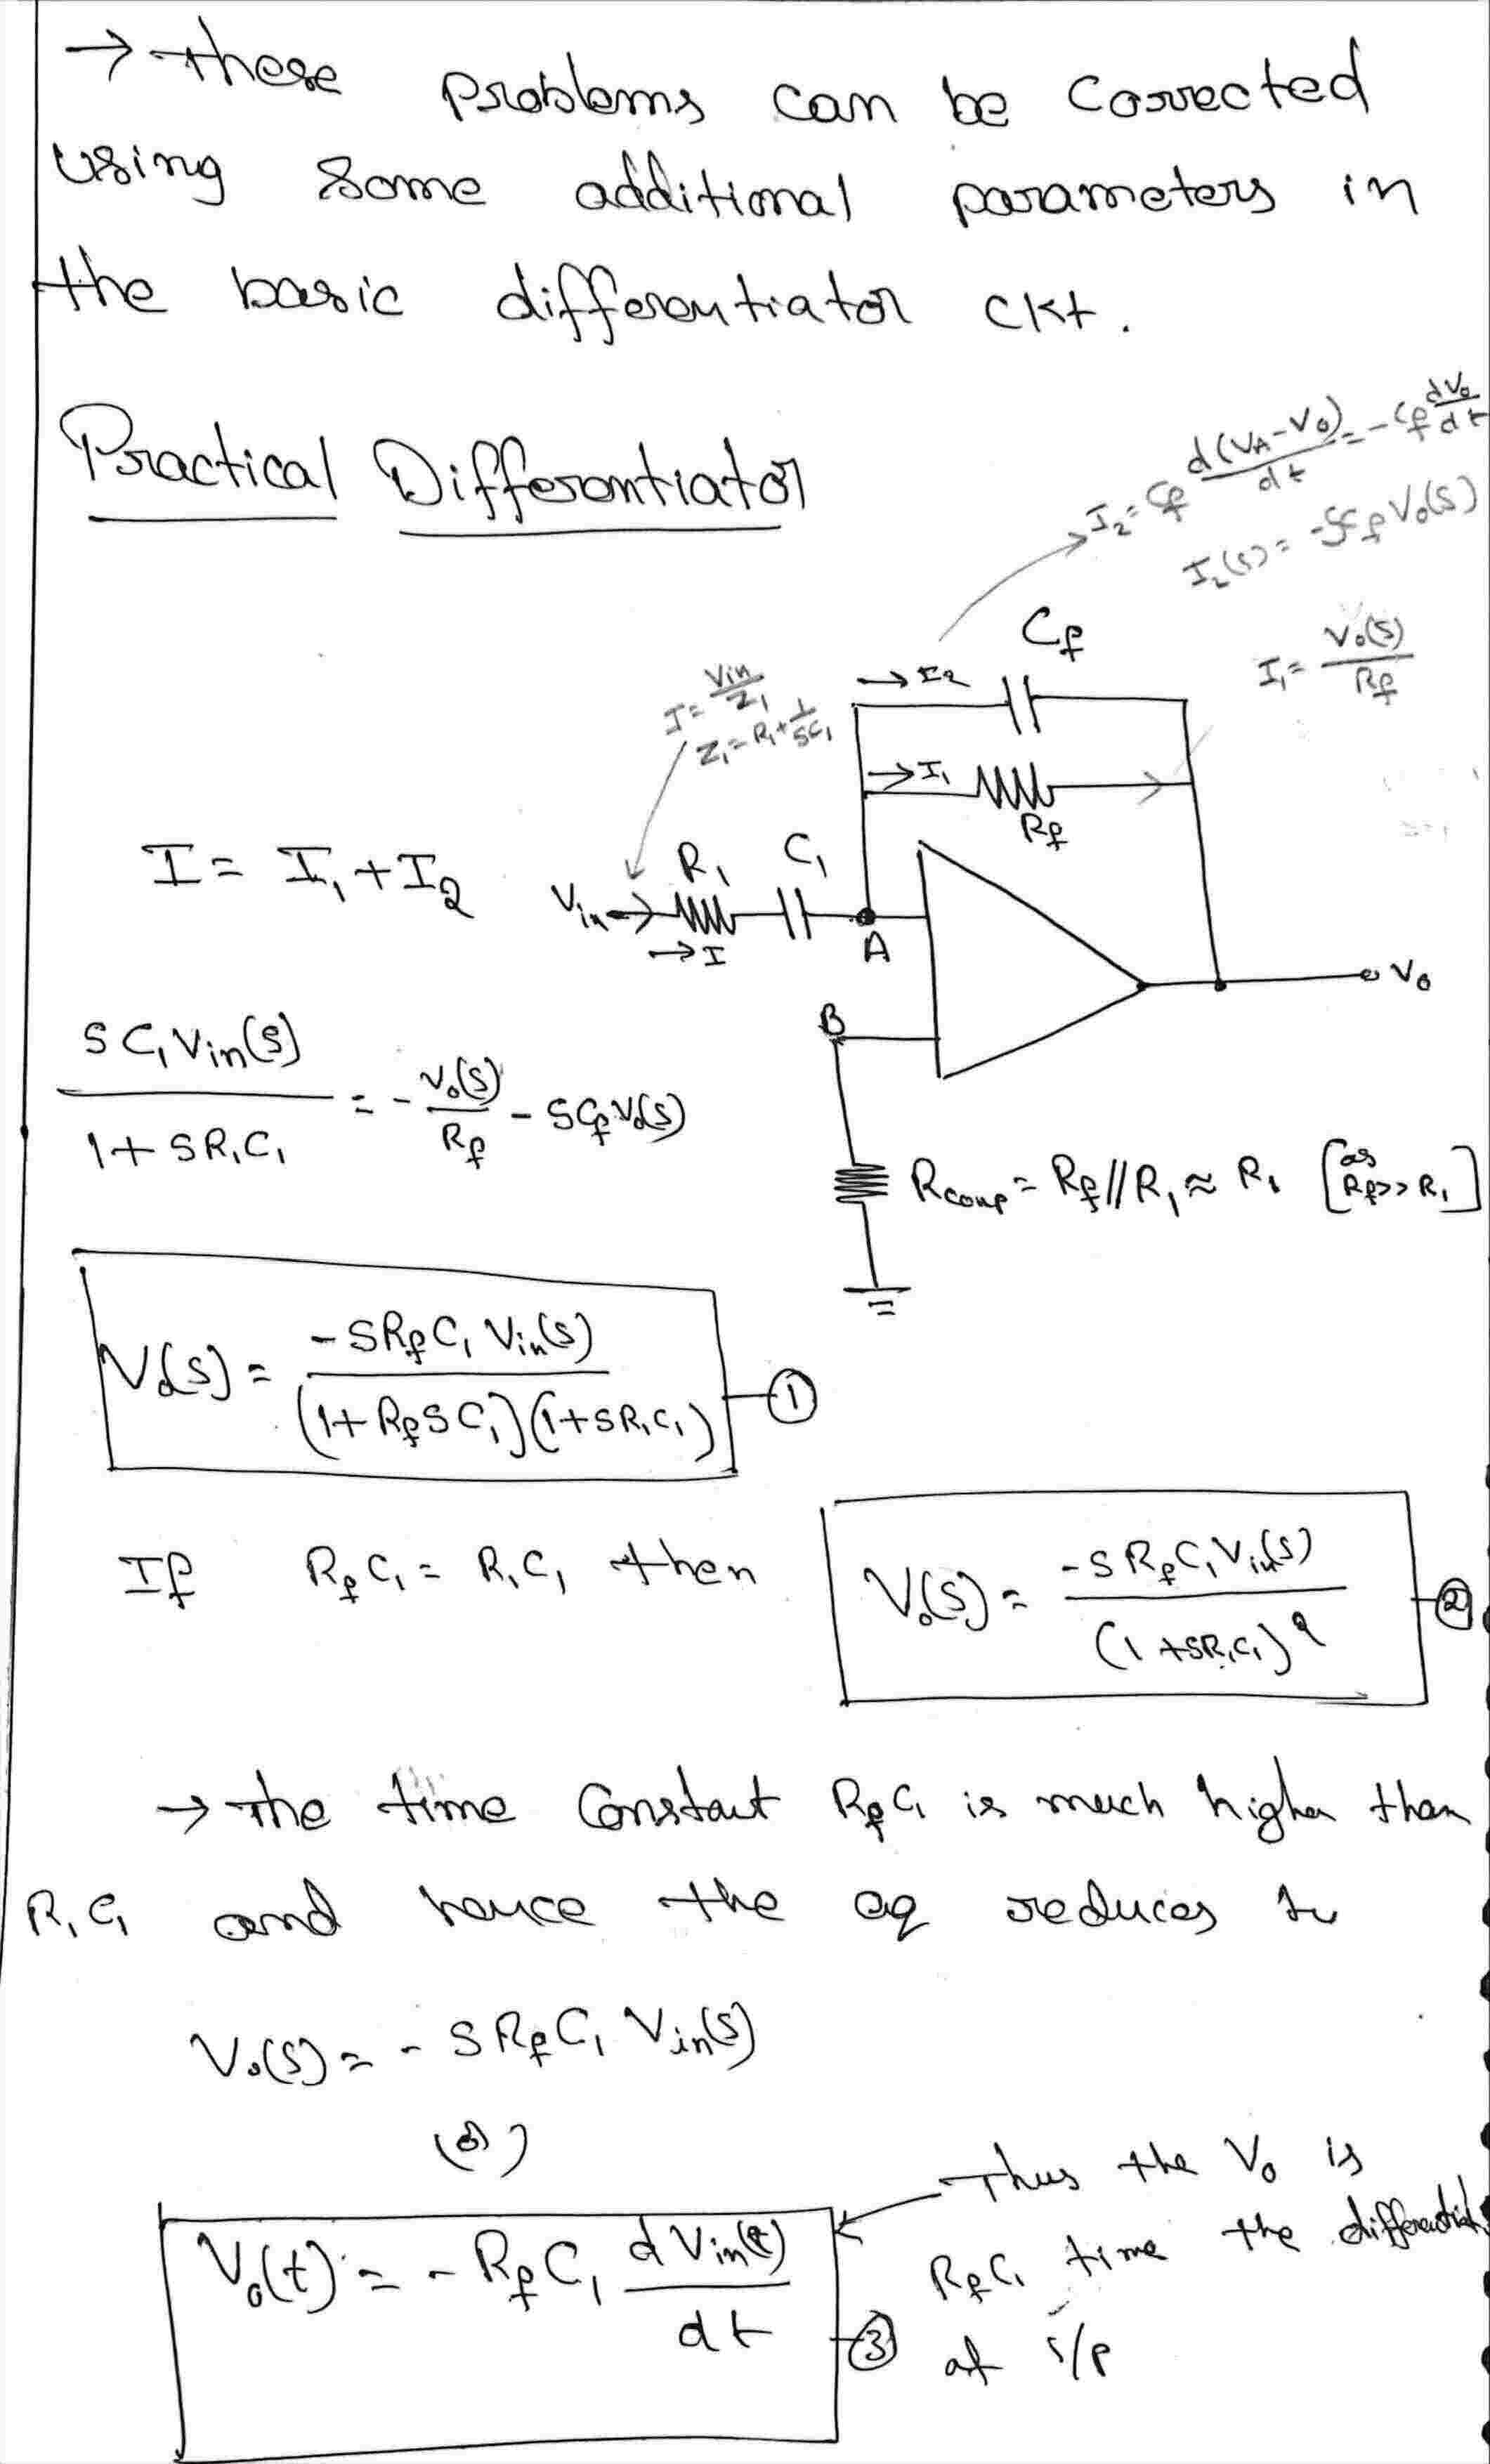 → these problems can be corrected
using some additional parameters in
the basic differentiator ckt.
Practical Differentiator
I₂ = Cf d(VA-Vo)/dt = -Cf dVo/dt
I₂(s) = -SCf Vo(s)
I₁ = Vo(s)/Rf
Cf
→ I₂
I = Vin/Z₁
Z₁ = R₁ + 1/SC₁
→ I₁
Rf
I = I₁ + I₂
Vin
R₁
C₁
→ I
A
Vo
B
SC₁Vin(s)/(1+SR₁C₁) = -Vo(s)/Rf - SCfVo(s)
Rcomp = Rf//R₁ ≈ R₁ [as Rf>>R₁]
Vo(s) = -SRfC₁Vin(s)/(1+RfSC₁)(1+SR₁C₁) ①
If RfC₁ = R₁C₁ then
Vo(s) = -SRfC₁Vin(s)/(1+SR₁C₁)² ②
→ The time Constant RfC₁ is much higher than
R₁C₁ and hence the eq reduces to
Vo(s) = -SRfC₁Vin(s)
(or)
Vo(t) = -RfC₁ dVin(t)/dt ③
Thus the Vo is
RfC₁ time the
of i/p